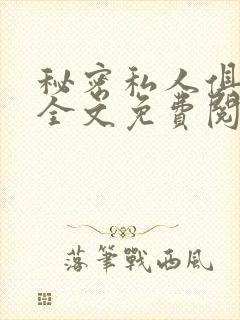 秘密私人俱
全文免費閱
落筆戰西風